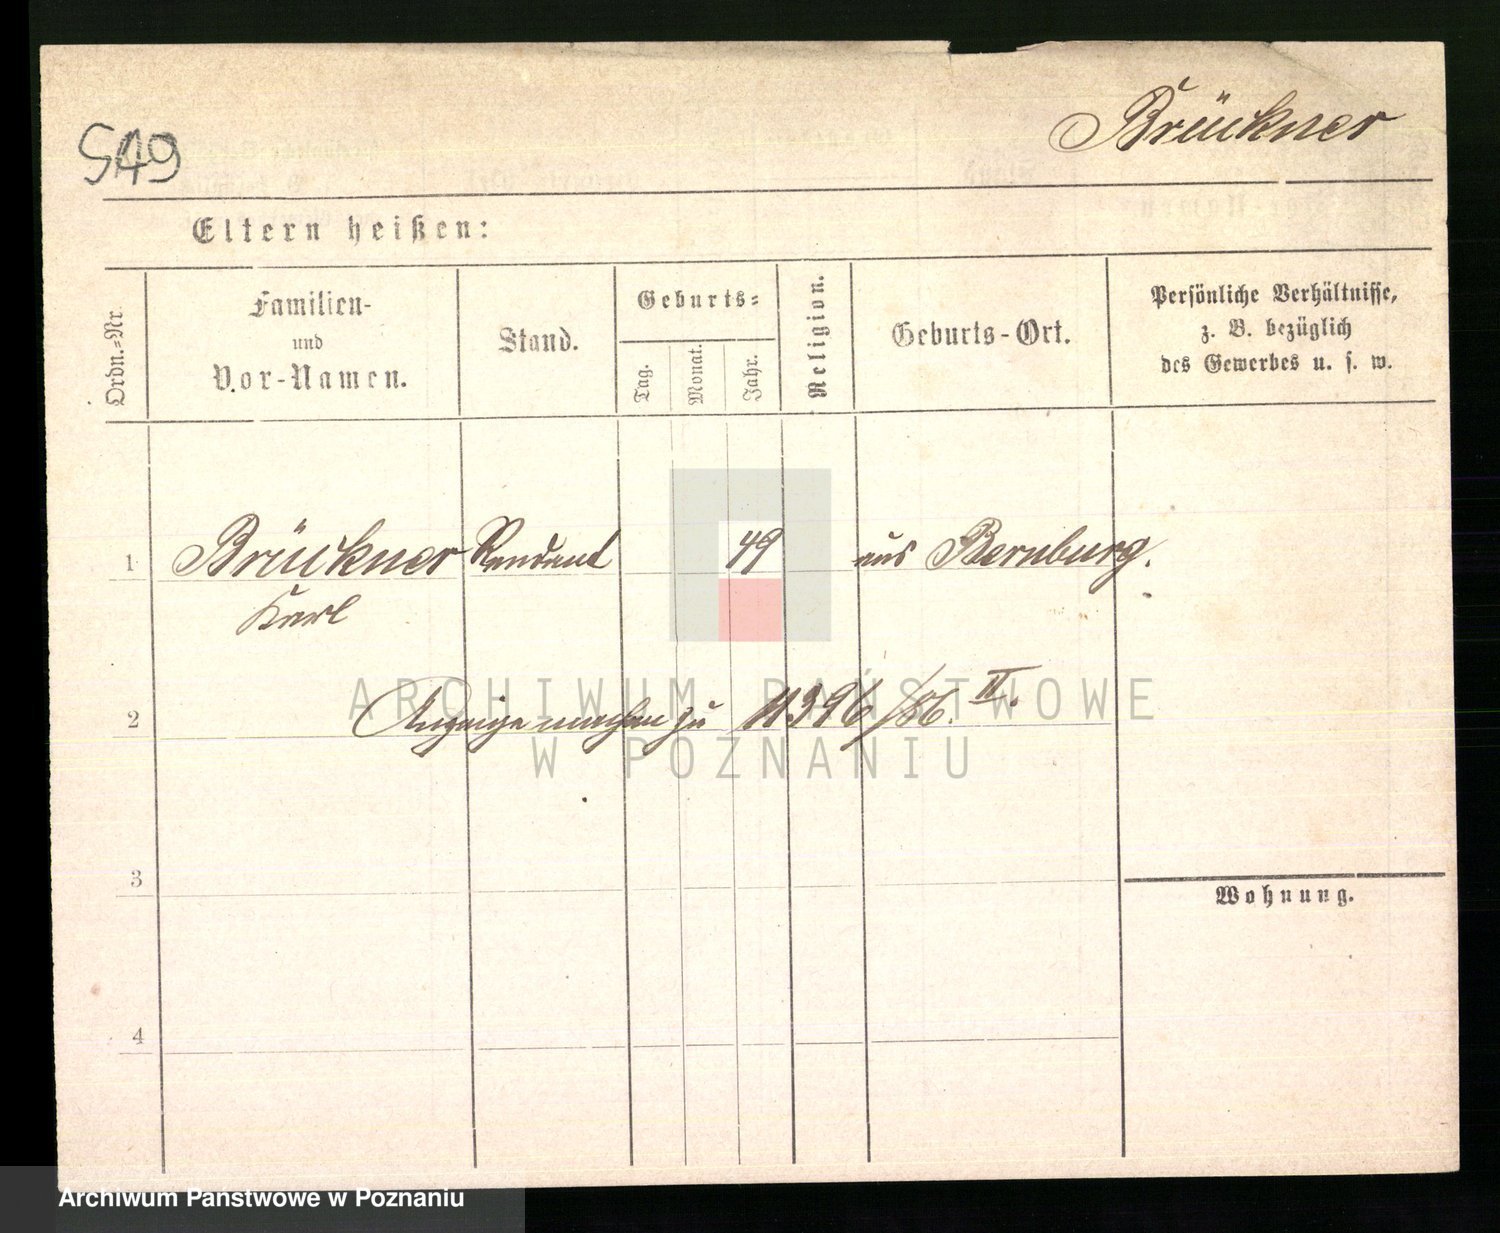 549
Brückner
Eltern heißen:
Ordn.-Nr.
Familien-
und
Vor-Namen.
Stand.
Geburts-
Tag.
Monat.
Jahr.
Religion.
Geburts-Ort.
Persönliche Verhältnisse,
z. B. bezüglich
des Gewerbes u. s. w.
1 Brückner Rendant 49 aus Bernburg.
Karl
2 Anzeige machen zu 11396/86. II.
ARCHIWUM PAŃSTWOWE
W POZNANIU
3
Wohnung.
4
Archiwum Państwowe w Poznaniu